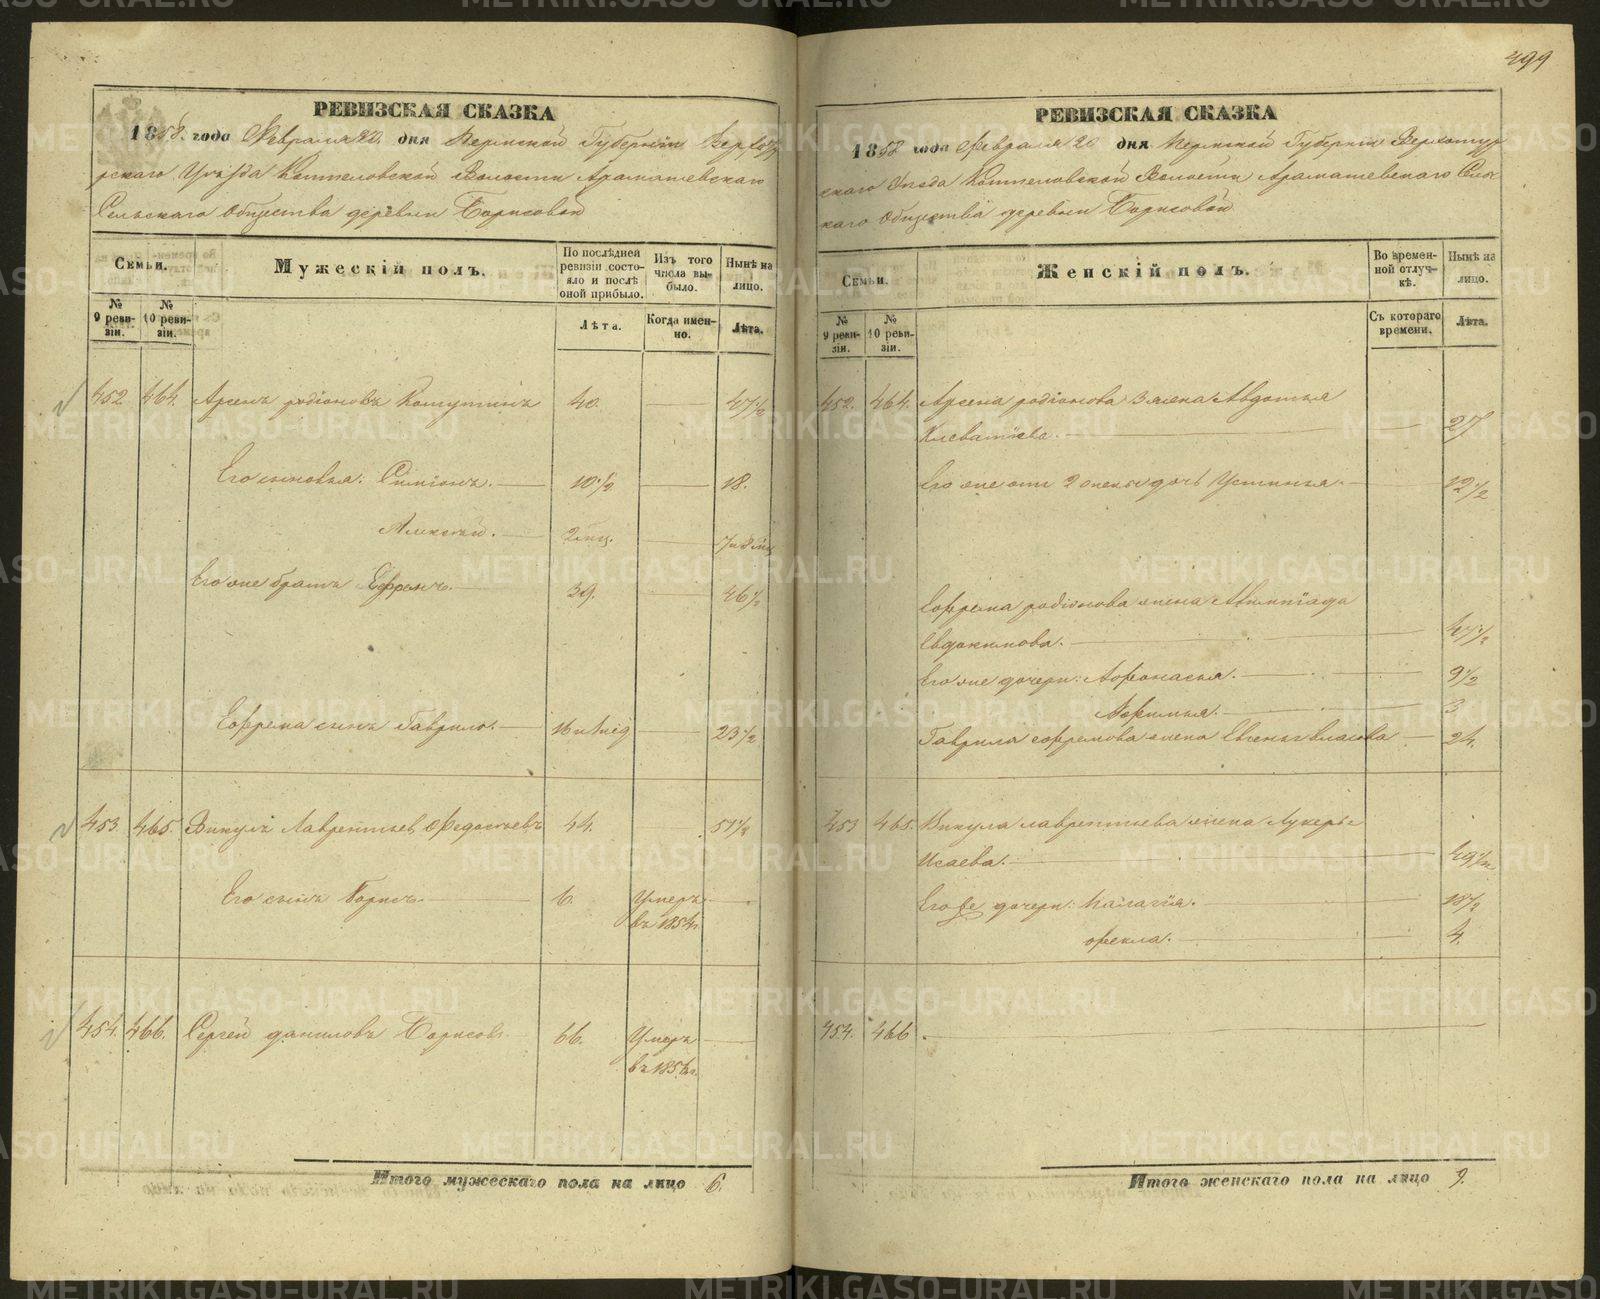 499
РЕВИЗСКАЯ СКАЗКА
1858 года Февраля 20 дня Пермской Губерніи Верхоту
рскаго Уѣзда Коптеловской Волости Арамашевскаго
Сельскаго Общества деревни Борисовой
Семьи.
Мужескій полъ.
По послѣдней ревизіи состояло и послѣ оной прибыло.
Изъ того числа выбыло.
Нынѣ на лицо.
№ 9 ревизіи.
№ 10 ревизіи.
Лѣта.
Когда именно.
Лѣта.
452 464. Арсенъ родіоновъ 40. 47 1/2
Его сыновья: Симіонъ. 10 1/2 18.
Алексѣй. 2 мц.
Его же братъ Ефремъ. 39. 46 1/2
Ефрема сынъ Гаврило. 16 23 1/2
453 465. Викулъ Лаврентьев Федосѣевъ 44. 51 1/2
Его сынъ Борисъ. 6. Умеръ
въ 1854г.
454. 466. Сергей даниловъ Борисов 66. Умеръ
въ 185
Итого мужескаго пола на лицо 6.
РЕВИЗСКАЯ СКАЗКА
1858 года Февраля 20 дня Пермской Губерніи Верхотур
скаго Уезда Коптеловской Волости Арамашевскаго Сельс
каго Общества деревни Борисовой
Семьи.
Женскій полъ.
Во временной отлучкѣ.
Нынѣ на лицо.
№ 9 ревизіи.
№ 10 ревизіи.
Съ котораго времени.
Лѣта.
452. 464. Арсена родіонова жена Авдотья
27
Его же отъ 2 жены дочь Устинья. 12 1/2
Ефрема родіонова жена
Евдокимова. 47 1/2
Его же дочери: Афонасья. 9 1/2
Афимья. 3
Гаврила ефремова жена Евгенья власова 24.
453 465. Викула лаврентьева жена Лукерья
Исаева. 49 1/2
Его же дочери: Палагія. 18 1/2
фекла. 4.
454. 466
Итого женскаго пола на лицо 9.
METRIKI.GASO-URAL.RU